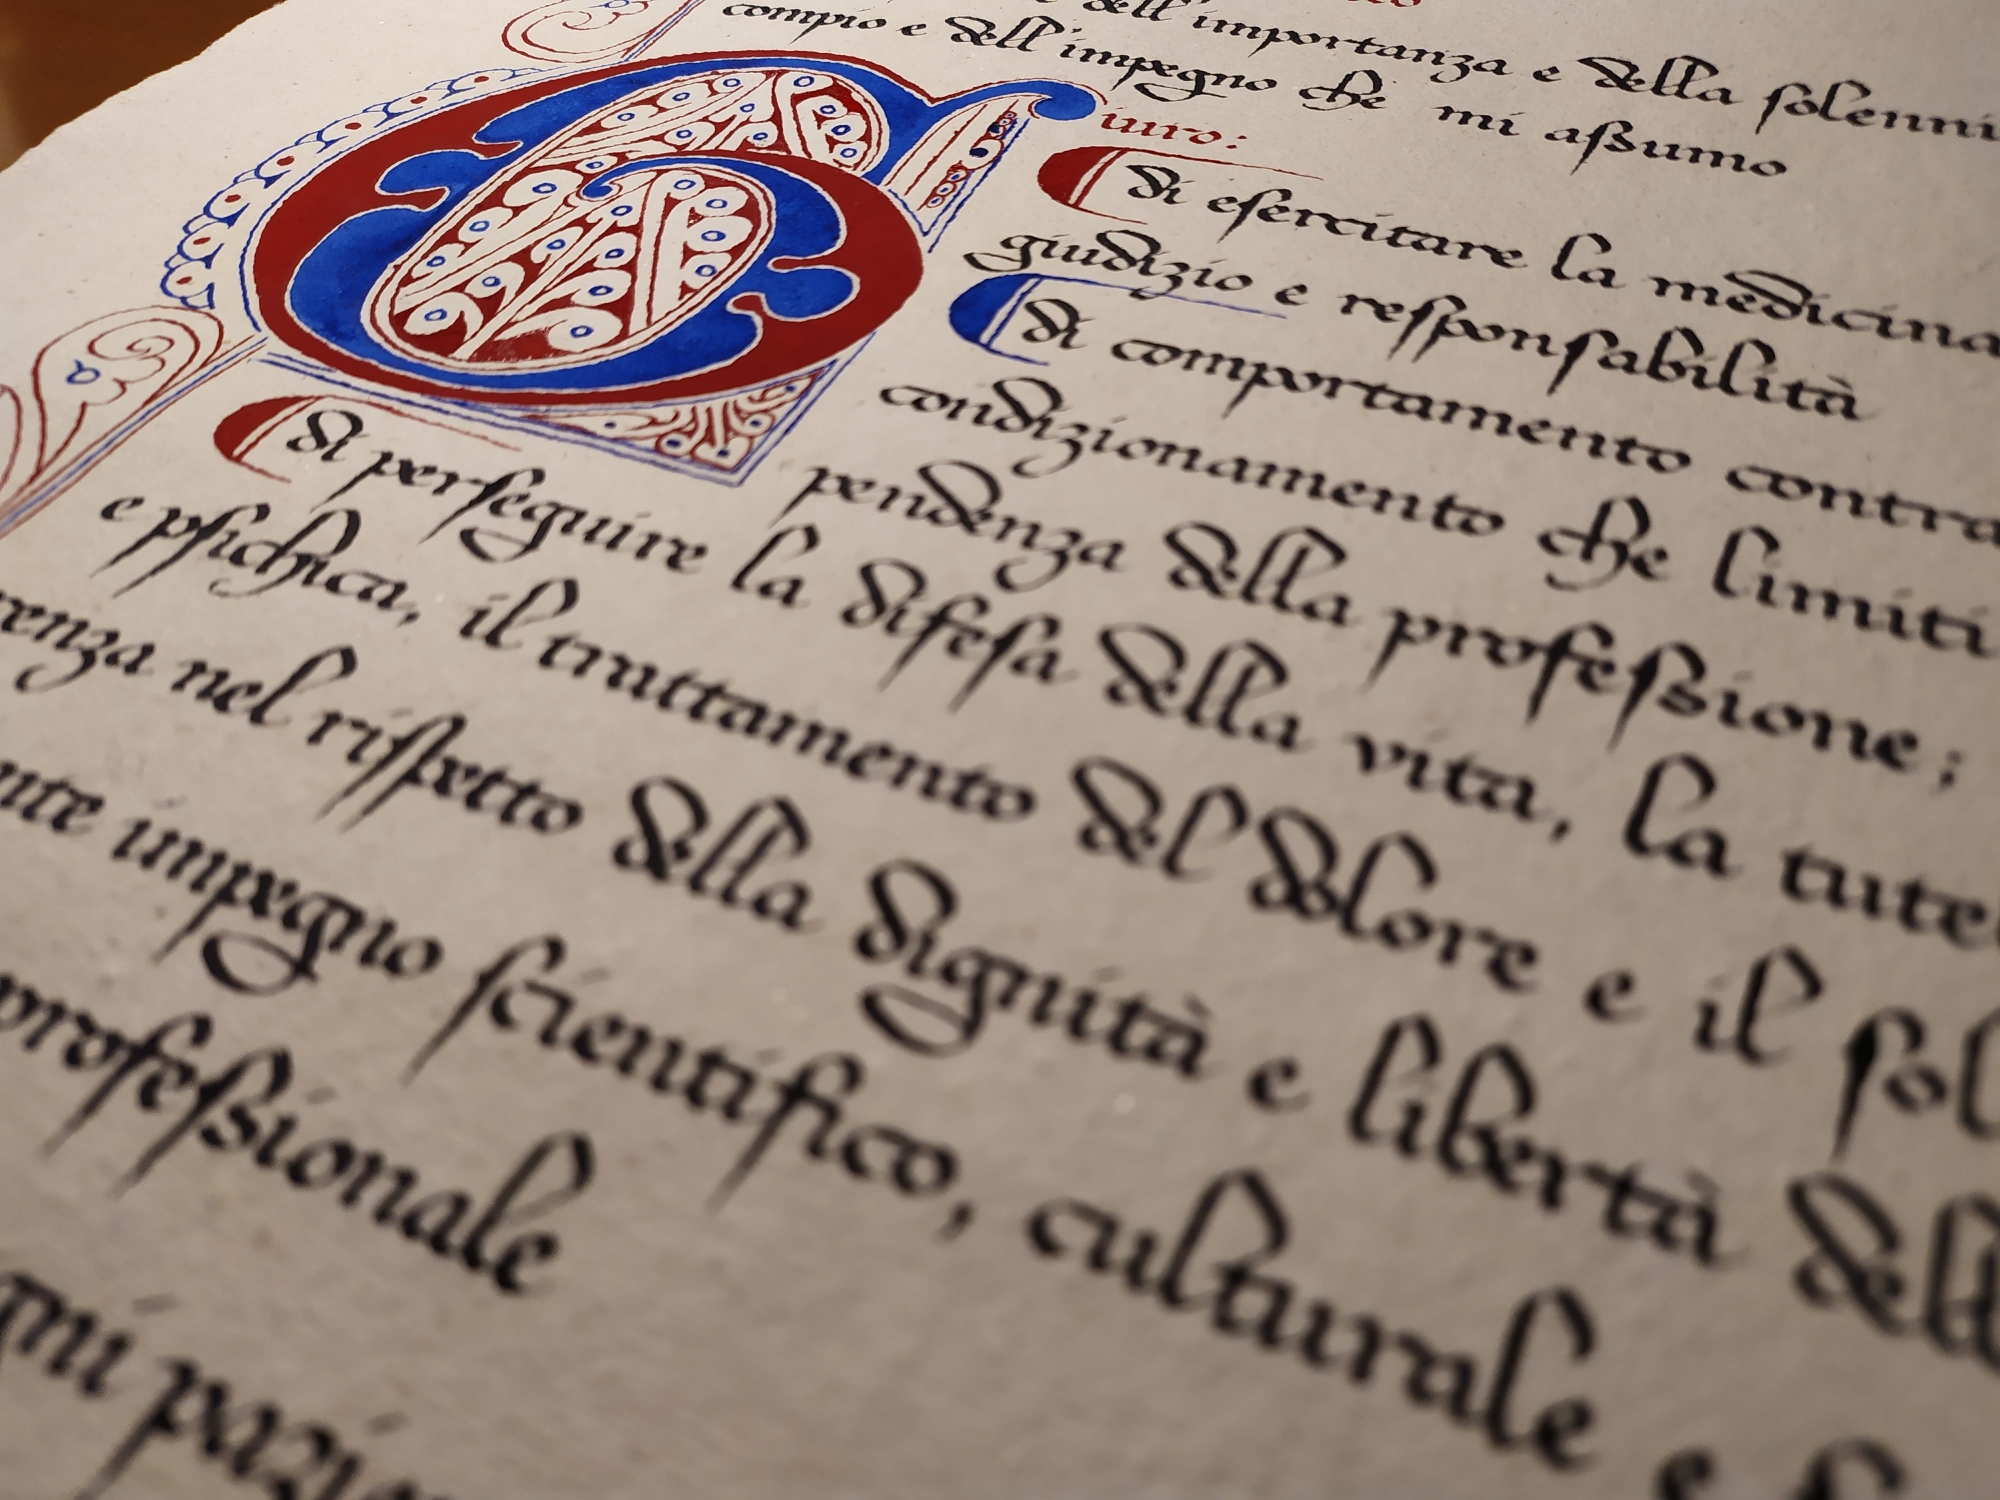 dell'importanza e della ſolenni
compio e dell'impegno che mi aſsumo
Giuro:
di eſercitare la medicina
giudizio e reſponſabilità
di comportamento contra
condizionamento che limiti
pendenza della profeſsione;
di perſeguire la difeſa della vita, la tutel
e pſichica, il trattamento del dolore e il ſol
renza nel riſpetto della dignità e libertà dell
nte impegno ſcientifico, culturale e ſ
profeſsionale
gni pazi